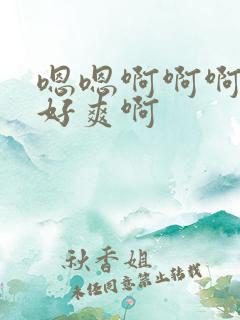 嗯嗯啊啊啊
好爽啊
秋香姐
未经同意禁止转载